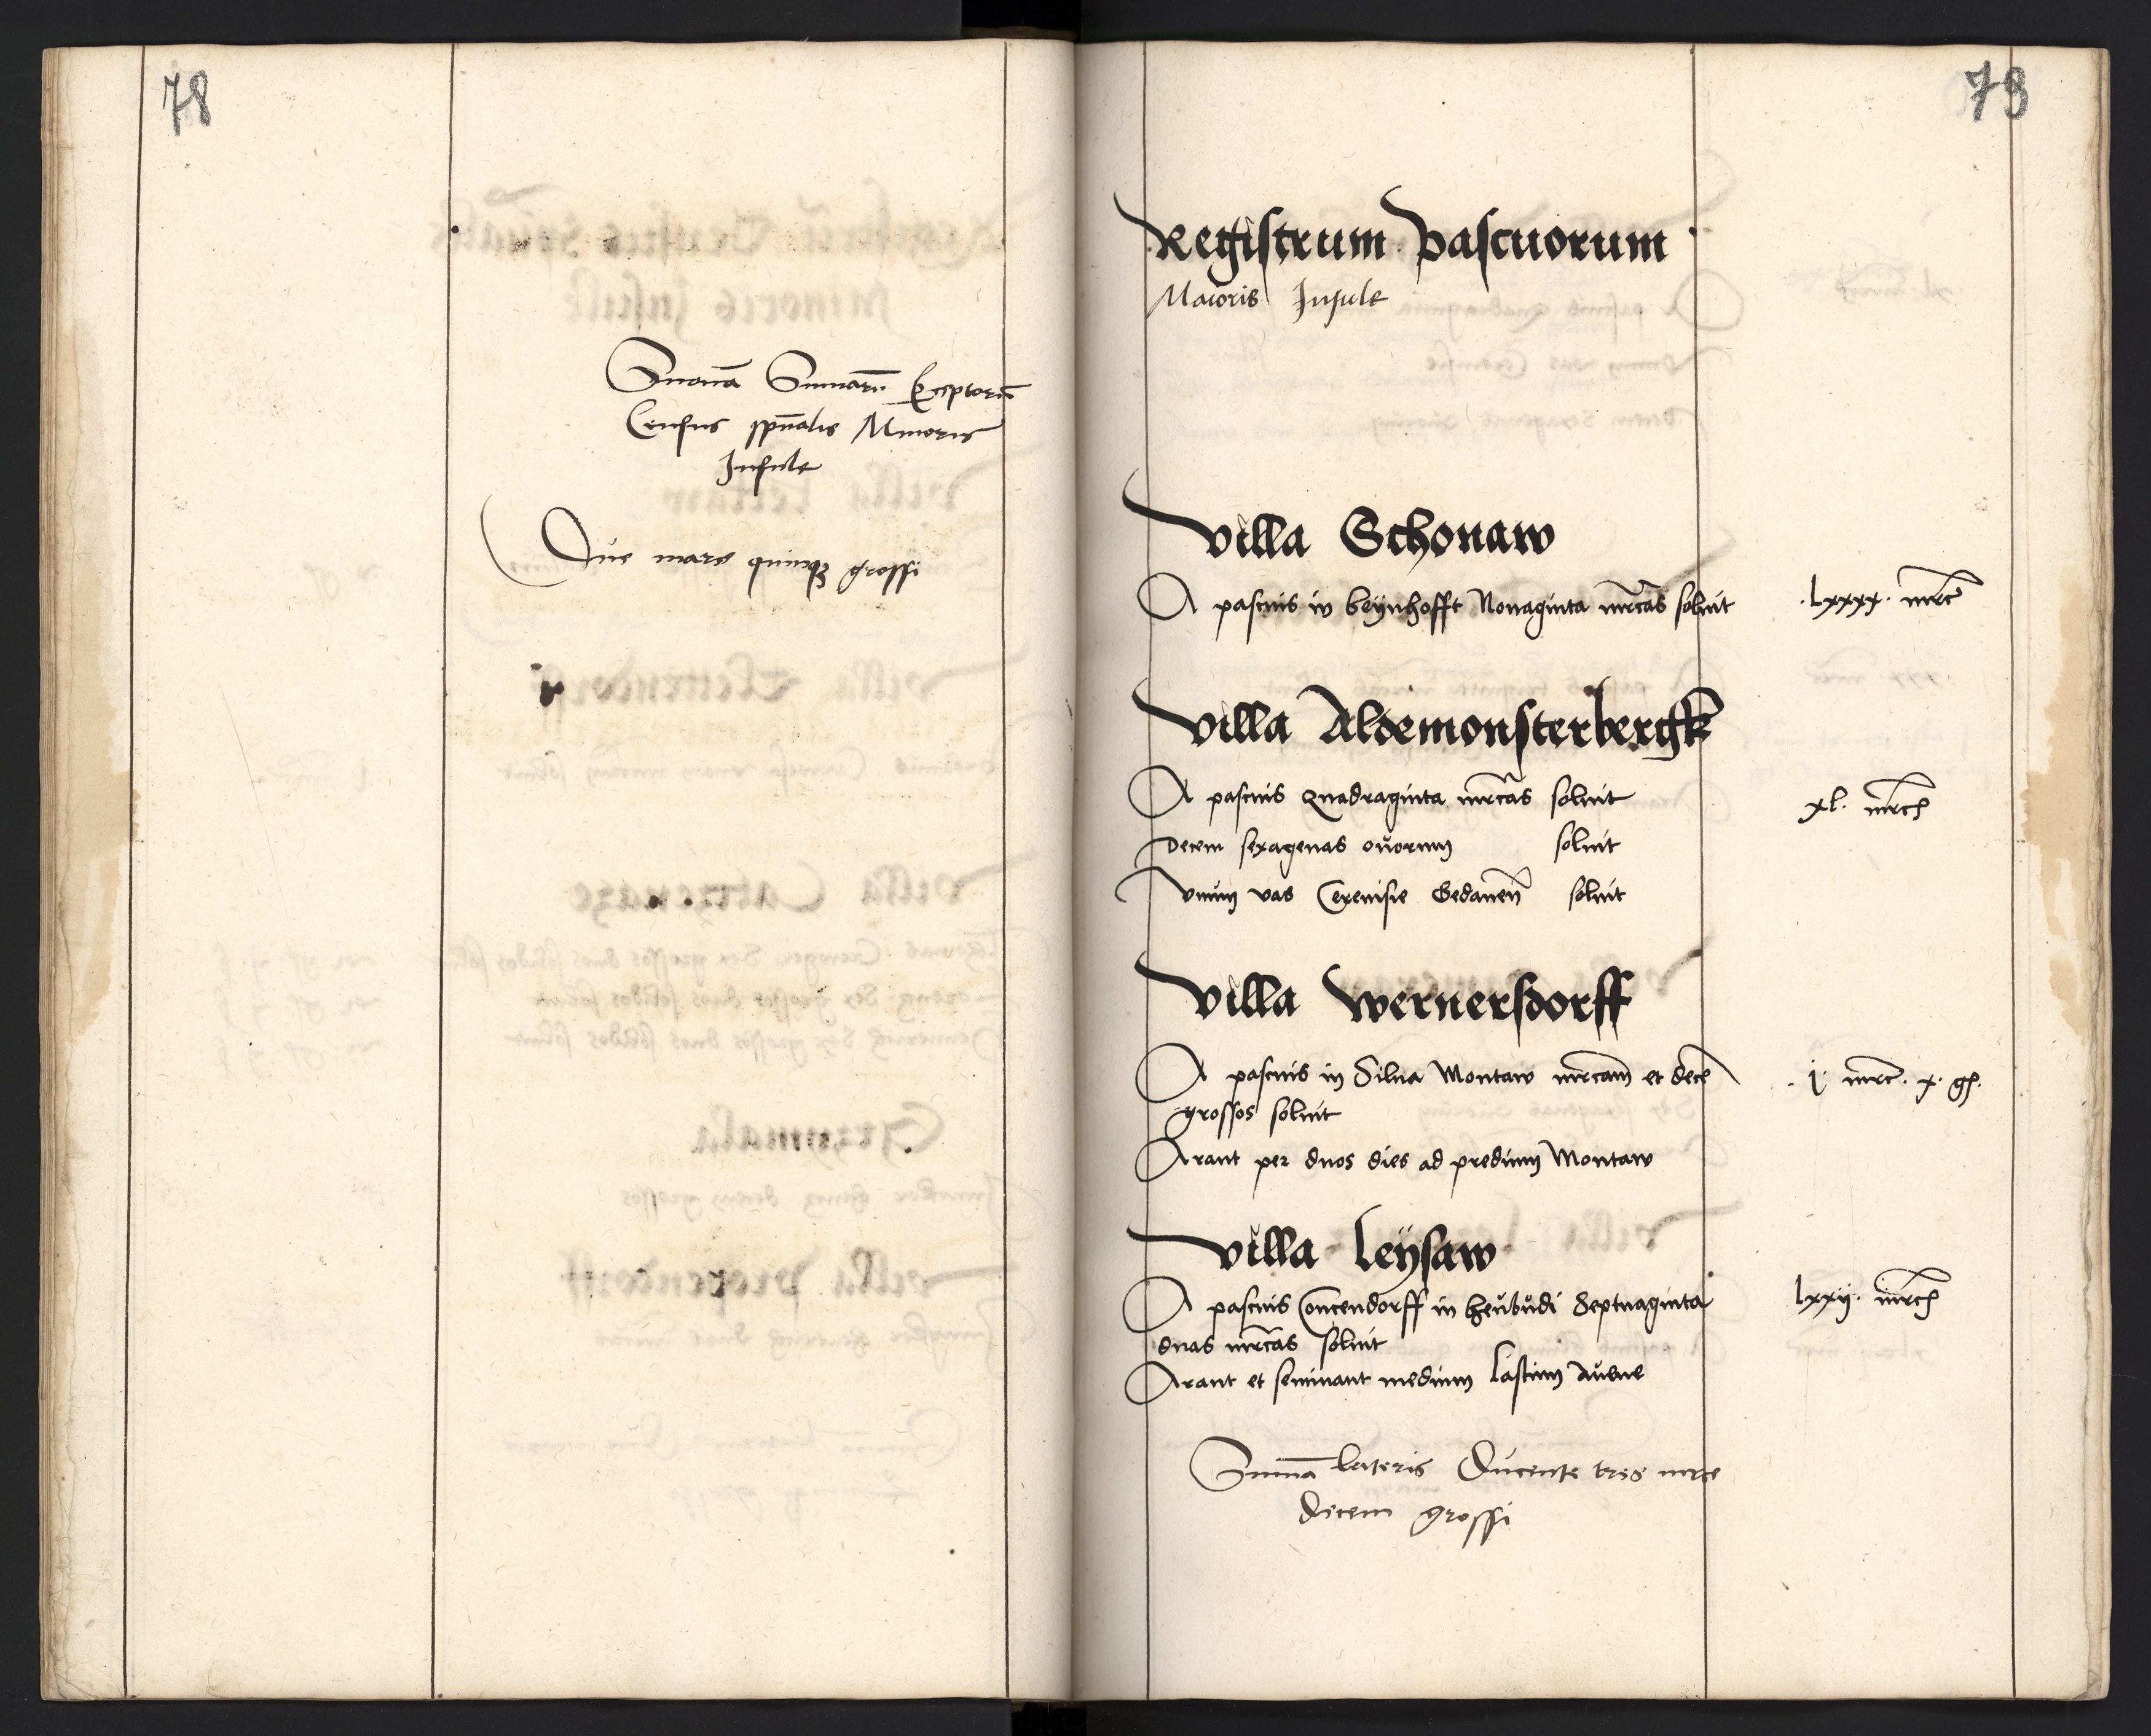 78
Summa Summarum Exceptorum
Census spiritualis Minoris
Insule
Due marce quinque grossi
79
Registrum Pascuorum
Maioris Insule
Villa Schonaw
A pascuis in beÿnhofft Nonaginta mrcas soluit .lxxxx. mrc
Villa Aldemonsterbergk
A pascuis Quadraginta mrcas soluit xl. mrc
Decem sexagenas ouorum soluit
Vnum vas Cereuisie Gedanen soluit
Villa Wernersdorff
A pascuis in Silua Montaw mrcam et dece .j. mrc. x. gs.
grossos soluit
Arant per duos dies ad predium Montaw
Villa Leÿsaw
A pascuis Concendorff in heubudi Septuaginta lxxij. mrc
duas mrcas soluit
Arant et seminant medium lastum auene
Summa lateris Ducente tres mrce
Decem grossi